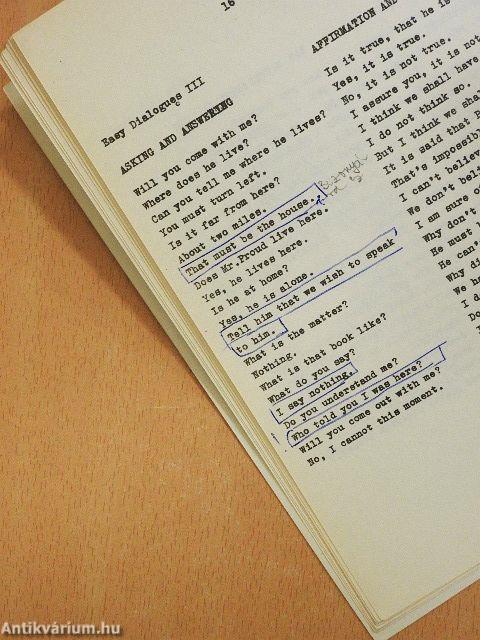 16
Easy Dialogues III
ASKING AND ANSWERING
Will you come with me?
Where does he live?
Can you tell me where he lives?
You must turn left.
Is it far from here?
About two miles.
That must be the house.
Does Mr.Proud live here.
Yes, he lives here.
Is he at home?
Yes, he is alone.
Tell him that we wish to speak
to him.
What is the matter?
Nothing.
What is that book like?
What do you say?
I say nothing.
Do you understand me?
Who told you I was here?
Will you come out with me?
No, I cannot this moment.
AFFIRMATION AND
Is it true, that he is
Yes, it is true.
No, it is not true.
I assure you, it is not
I think we shall have
I do not think so.
But I think we shall
It is said that
That's impossibl
I can't believe
We don't belie
I am sure o
Why don't
He must
He can'
Why di
We h
I d
Do
Antikvárium.hu